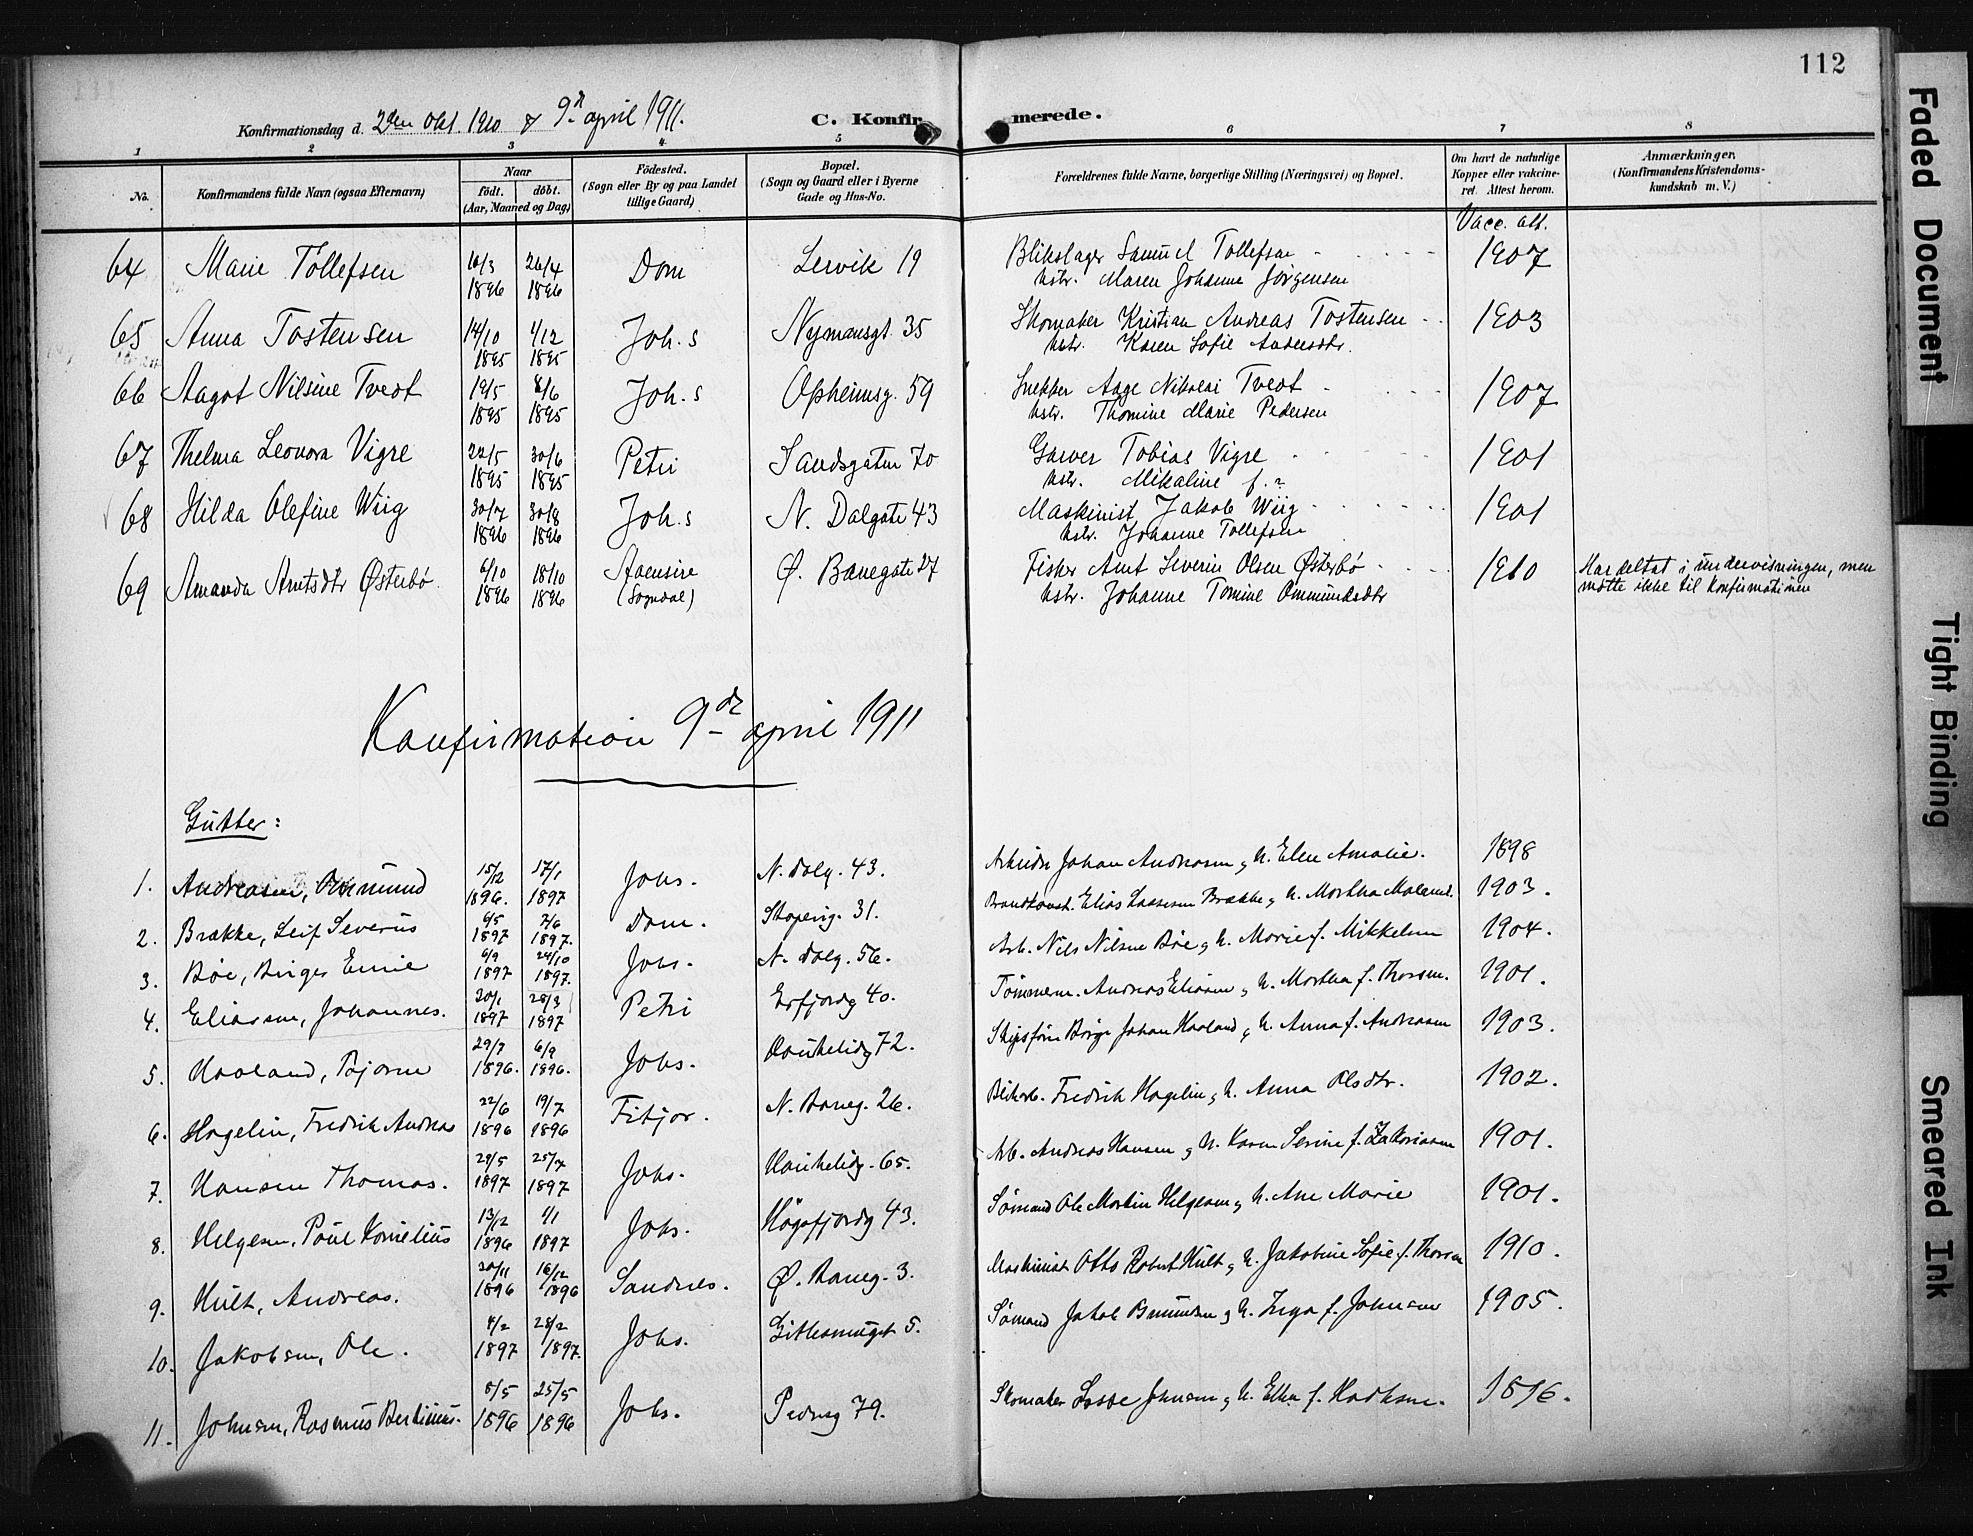 112
Konfirmationsdag d. 2den Okt. 1910 & 9d april 1911.
C. Konfirmerede.
1 2 3 4 5 6 7 8
No.
Konfirmandens fulde Navn (ogsaa Efternavn)
Naar
født. døbt.
(Aar, Maaned og Dag)
Födested.
(Sogn eller By og paa Landet
tillige Gaard)
Bopæl.
(Sogn og Gaard eller i Byerne
Gade og Hus-No.
Forældrenes fulde Navne, borgerlige Stilling (Næringsvei) og Bopæl.
Om havt de naturlige
Kopper eller vakcine-
ret. Attest herom.
Anmærkninger.
(Konfirmandens Kristendoms-
kundskab m. V.)
Vacc. att.
64 Marie Tollefsen 16/3 1896 26/4 1896 Dom Lervik 19 Blikslager Samuel Tollefsen 1907
hstr. Maren Johanne Jørgensen
65 Anna Tostensen 14/10 1895 1/12 1895 Joh.s Nymansgt. 35 Skomaker Kristian Andreas Tostensen 1903
hstr. Karen Sofie Andersdtr.
66 Aagot Nilsine Tveot 19/5 1895 8/6 1895 Joh.s Opheimsg. 59 Snekker Aage Nikolai Tveot 1907
hstr. Thomine Marie Pedersen
67 Thelma Leonora Vigre 22/5 1895 30/6 1895 Petri Sandsgaten 70 Garver Tobias Vigre 1901
hstr. Mikaline f. ?
68 Hilda Olefine Wiig 30/7 1896 30/8 1896 Joh.s N. Dalgate 43 Maskinist Jakob Wiig 1901
hstr. Johanne Tollefsen
69 Amanda Arntsdtr Østerbø 6/10 1896 18/10 1896 (Sogndal) Ø. Banegate 27 Fisker Arnt Severin Olsen Østerbø 1910 Har deltat i undervisningen, men
hstr. Johanne Tomine Ommundsdtr møtte ikke til konfirmationen
Konfirmation 9de april 1911
Gutter:
1. Andreasen, Ommund 15/12 1896. 17/1 1897 Johs. N. dalg. 43. Johan Andreasen & h. Elen Amalie. 1898
2. Brække, Leif Severus 6/5 1897 7/6 1897. Dom. Støperig. 31. Brandkonst. Elias Lassesen Brække & h. Martha 1903.
3. Bøe, Birger Emil 6/9 1897 24/10 1897. Johs. N. dalg. 56. Arb. Nils Nilsen Bøe & h. Marie f. Mikkelsen 1904.
4. Eliassen, Johannes. 20/1 1897 28/3 1897 Petri Erfjordg 40. Tømmerm. Andreas Eliassen & h. Martha f. Thorsen. 1901.
5. Haaland, Bjarne 29/7 1896. 6/9 1896. Johs. Haukelidg 72. Skipsfører Børge Johan Haaland & h. Anna f. Andreasen 1903.
6. Hagelin, Fredrik Andreas 22/6 1896 19/7 1896 Fitjar. N. Baneg. 26. Blikarb. Fredrik Hagelin & h. Anna Olsdtr. 1902.
7. Hansen Thomas. 28/5 1897 25/7 1897 Johs. Haukelidg. 65. Arb. Andreas Hansen & h. Karen Serine f. Zakariasen 1901.
8. Helgesen, Paul Kornelius 13/12 1896 1/1 1897 Johs. Høgsfjordg 43. Sømand Ole Martin Helgesen & h. Ane Marie 1901.
9. Hult, Andreas. 20/11 1896 16/12 1896 Sandnes. Ø. Baneg. 3. Maskinist Otto Robert Hult & h. Jakobine Sofie f. Thorsen 1910.
10. Jakobsen, Ole. 4/2 1897 28/2 1897. Johs. 5. Sømand Jakob & h. Inga f. Johnsen 1905.
11. Johnsen, Rasmus Bertinius. 8/5 1896 25/5 1896 Johs. Pedersg 79. Skomaker Lasse Johnsen & h. 1896.
Faded Document
Tight Binding
Smeared Ink